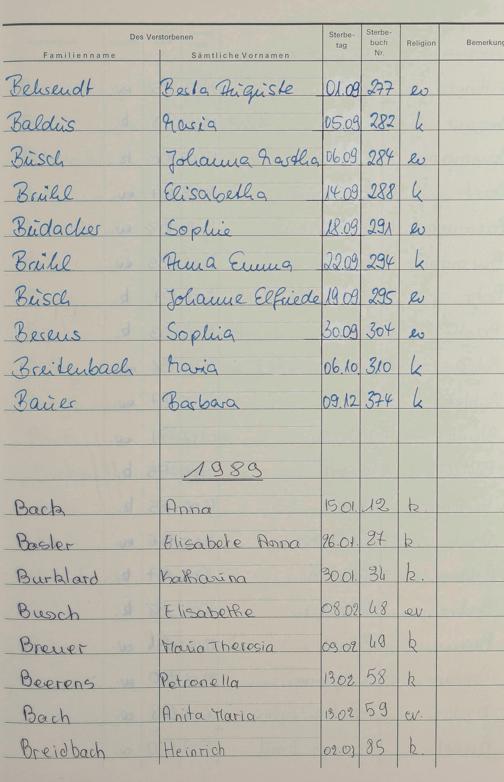 Des Verstorbenen Sterbe- Sterbe-
tag buch Religion Bemerkung
Familienname Sämtliche Vornamen Nr.
Behrendt Berta Auguste 01.09 277 ev
Baldus Maria 05.09 282 k
Busch Johanna Martha 06.09 284 ev
Brühl Elisabetha 14.09 288 k
Budacker Sophie 18.09 291 ev
Brühl Anna Emma 22.09 294 k
Busch Johanne Elfriede 19.09 295 ev
Berens Sophia 30.09 304 ev
Breitenbach Maria 06.10 310 k
Bauer Barbara 09.12 374 k
1989
Back Anna 15.01. 12 k.
Basler Elisabete Anna 26.01. 27 k
Burklard Katharina 30.01. 34 k.
Busch Elisabethe 08.02 48 ev.
Breuer Maria Theresia 09.02 49 k
Beerens Petronella 13.02 58 k
Bach Anita Maria 13.02 59 ev.
Breidbach Heinrich 02.03 85 k.